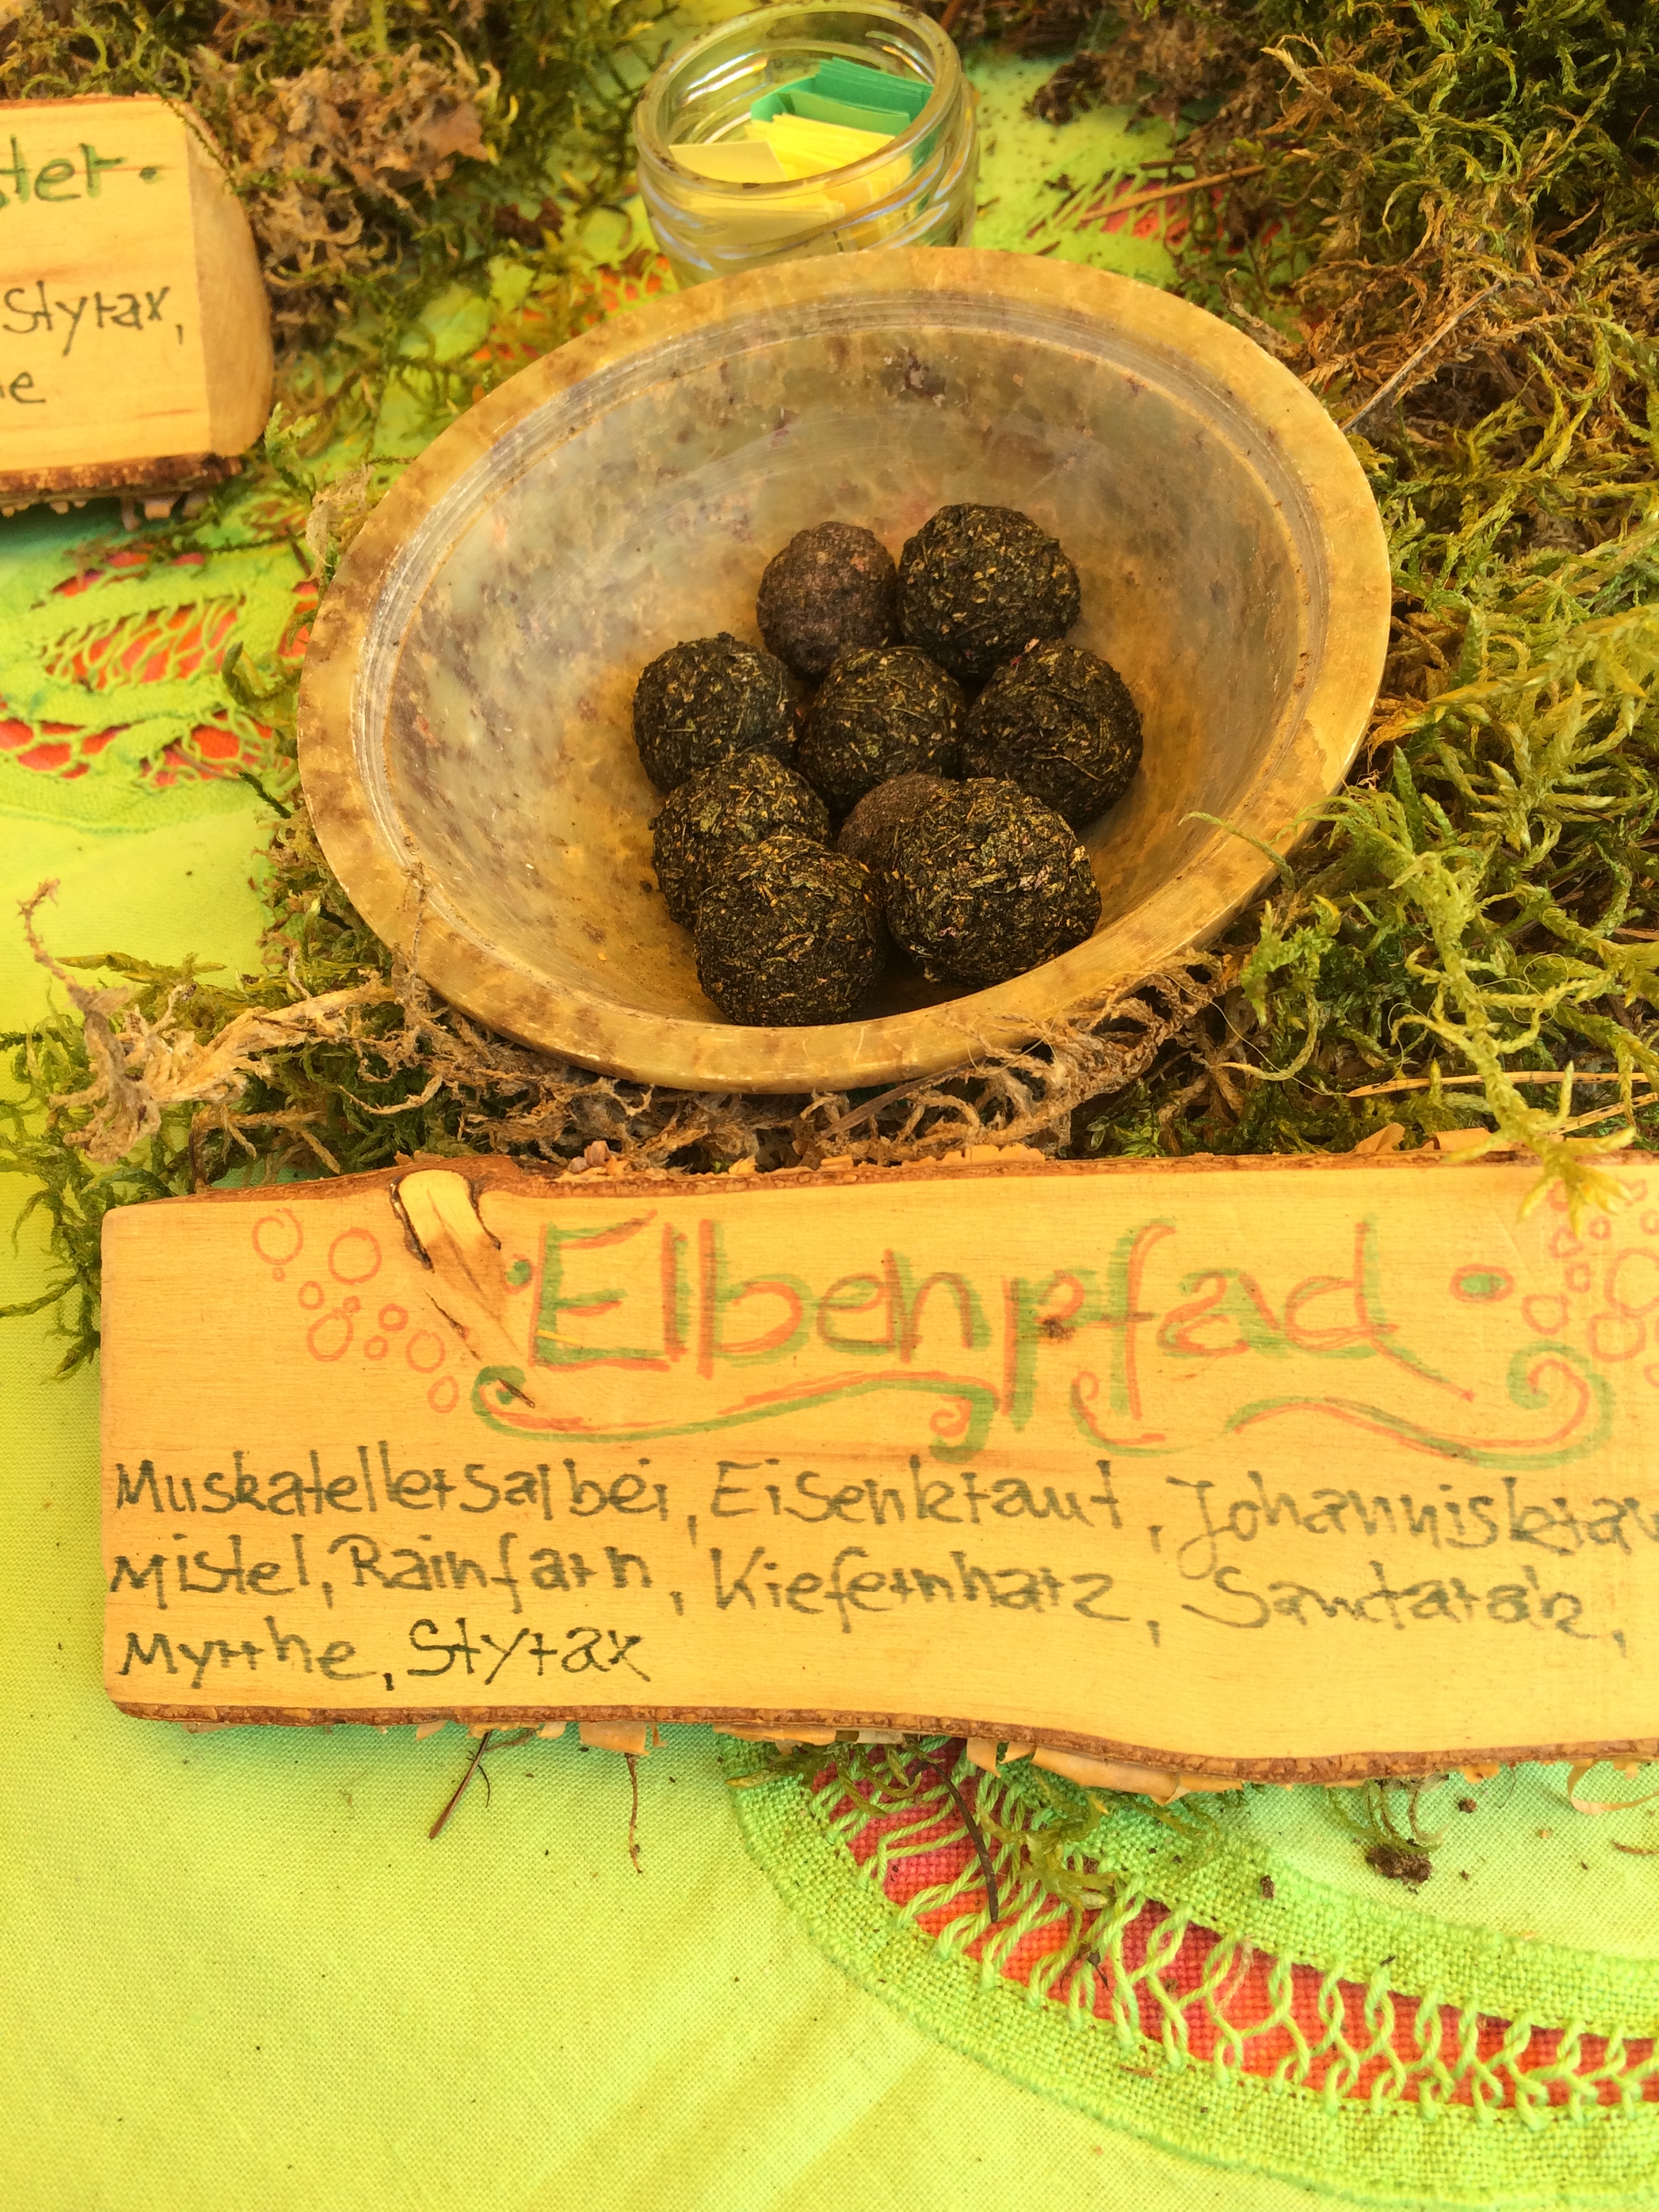 ster.
Styrax,
e
Elbenpfad
MuskatellerSalbei, Eisenkraut, Johanniskrau
Mistel, Rainfarn, Kiefernharz, Sandarak,
Myrrhe, Styrax